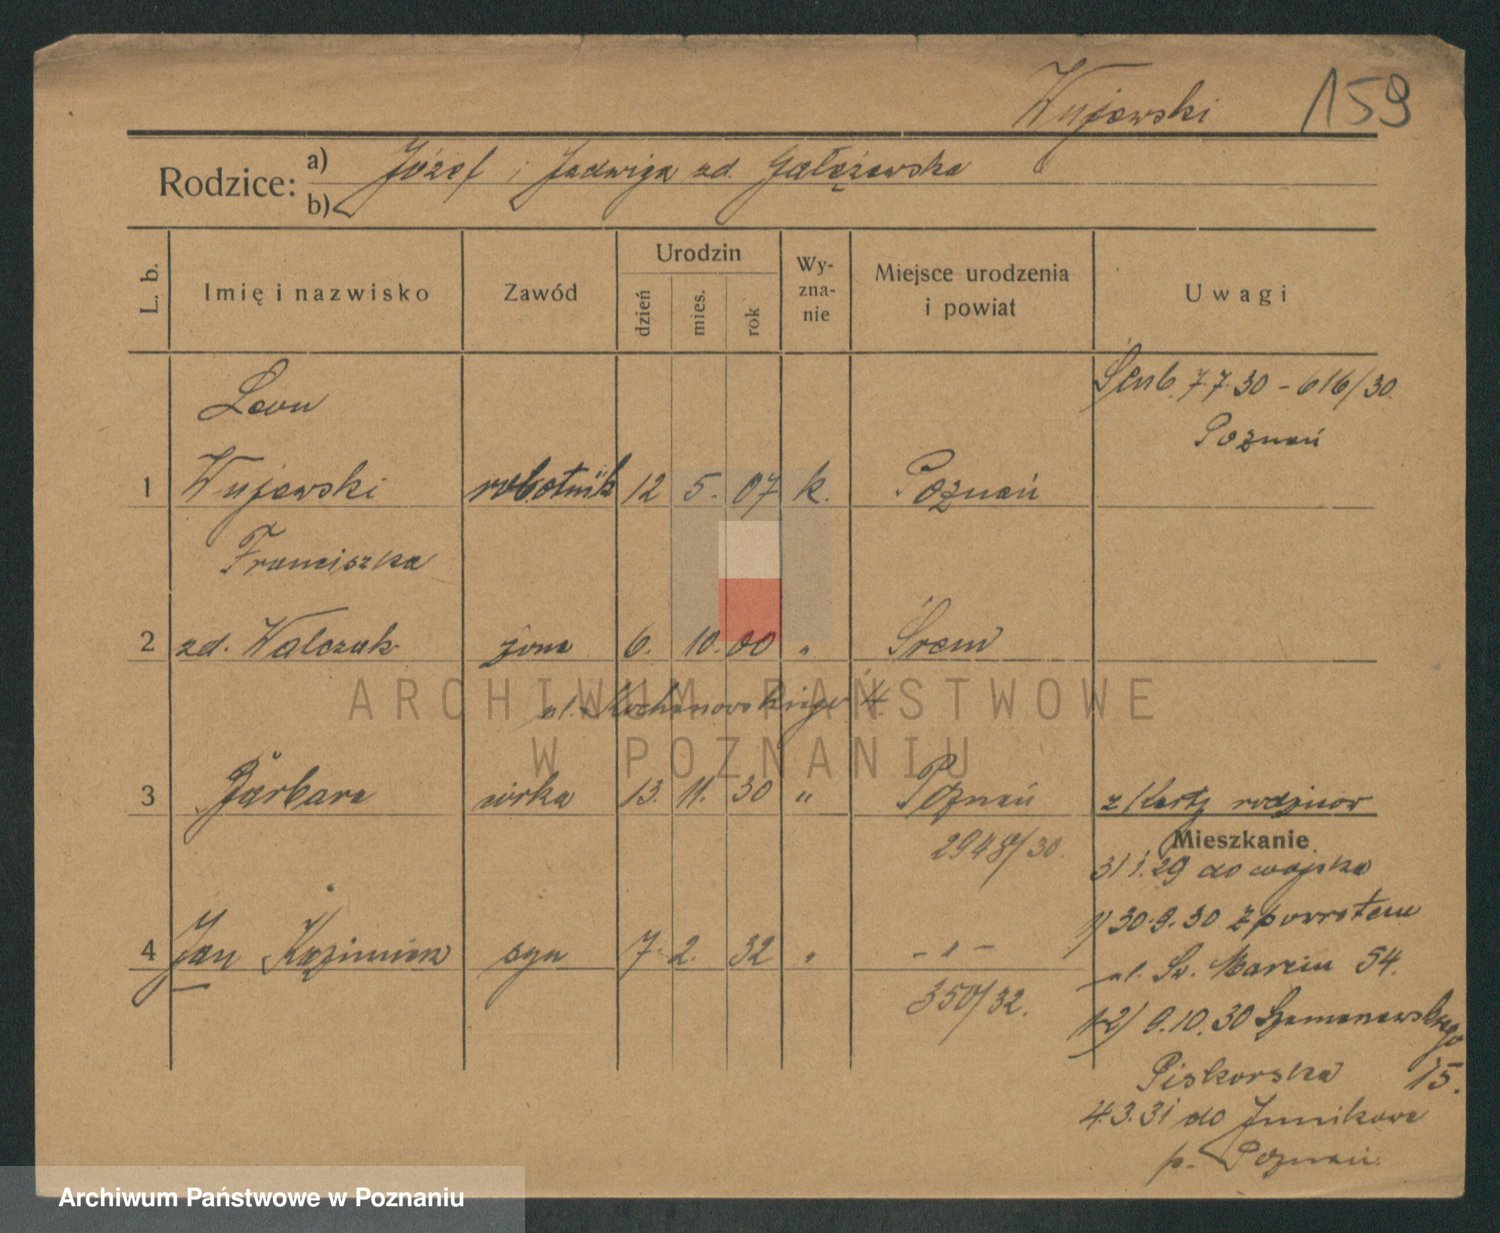 Wujewski 159
Rodzice: a) Józef i Jadwiga zd. Gałężewska
b)
L. b. Imię i nazwisko Zawód Urodzin dzień mies. rok Wy-zna-nie Miejsce urodzenia i powiat Uwagi
Leon Ślub. 7.7.30 - 616/30
Poznań
1 Wujewski robotnik 12 5. 07 k. Poznań
Franciszka
2 zd. Walczak żona 6. 10. 00 " Śrem
ul. Kochanowskiego 4.
3 Barbara córka 13. 11. 30 " Poznań z Karty rodzinow
2948/30. Mieszkanie
31 1.29 do wojska
1) 30.9.30 z powrotem
4 Jan Kazimierz syn 7. 2. 32 " - " -
ul. Św. Marcin 54.
350/32.
1-2) 9.10.30 Szamarzewskiego
Piskorska 15.
4.3.31 do Junikowa
p. Poznań
ARCHIWUM PAŃSTWOWE
W POZNANIU
Archiwum Państwowe w Poznaniu